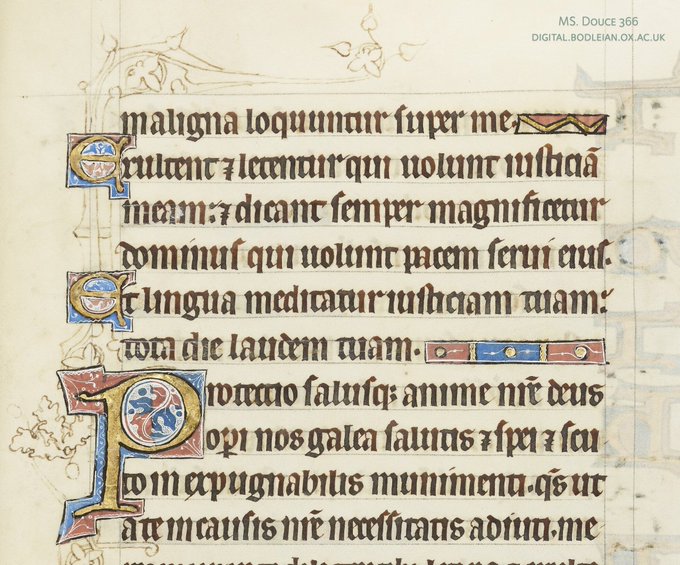 MS. Douce 366
DIGITAL.BODLEIAN.OX.AC.UK
maligna loquuntur super me.
Exultent ⁊ letentur qui uolunt iusticiā
meam: ⁊ dicant semper magnificetur
dominus qui uolunt pacem serui eius.
Et lingua meditatur iusticiam tuam:
tota die laudem tuam.
Protectio salusqꝫ anime nr̄e deus
opi nos galea salutis ⁊ spei ⁊ scu
to inexpugnabilis munimenti. qs̄ ut
a te in causis nr̄e necessitatis adiuti. me